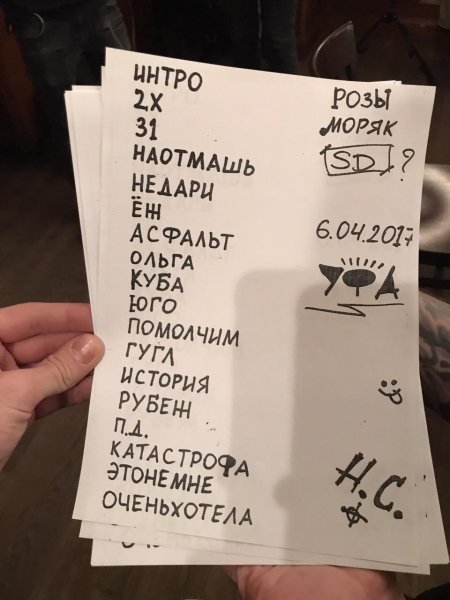 ИНТРО
2Х
31
НАОТМАШЬ
НЕДАРИ
ЁЖ
АСФАЛЬТ
ОЛЬГА
КУБА
ЮГО
ПОМОЛЧИМ
ГУГЛ
ИСТОРИЯ
РУБЕЖ
П.Д.
КАТАСТРОФА
ЭТОНЕМНЕ
ОЧЕНЬХОТЕЛА
РОЗЫ
МОРЯК
SD ?
6.04.2017
УФА
Н.С.